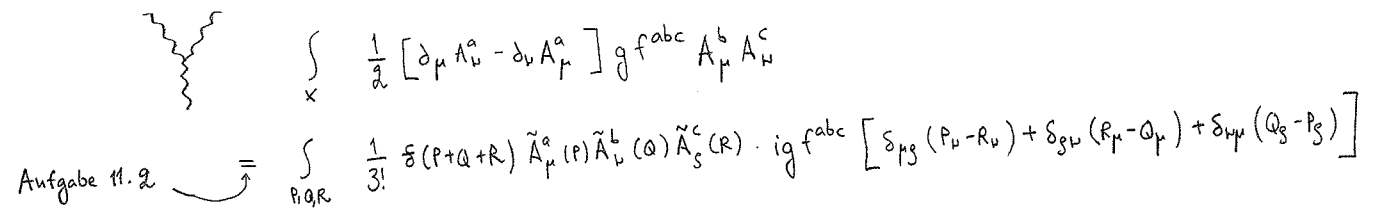 ∫_x 1/2 [∂_μ A^a_ν − ∂_ν A^a_μ] g f^{abc} A^b_μ A^c_ν
Aufgabe 11.2 = ∫_{P,Q,R} 1/3! δ(P+Q+R) Ã^a_μ(P) Ã^b_ν(Q) Ã^c_ρ(R) · i g f^{abc} [δ_{μρ}(P_ν−R_ν) + δ_{ρν}(R_μ−Q_μ) + δ_{νμ}(Q_ρ−P_ρ)]